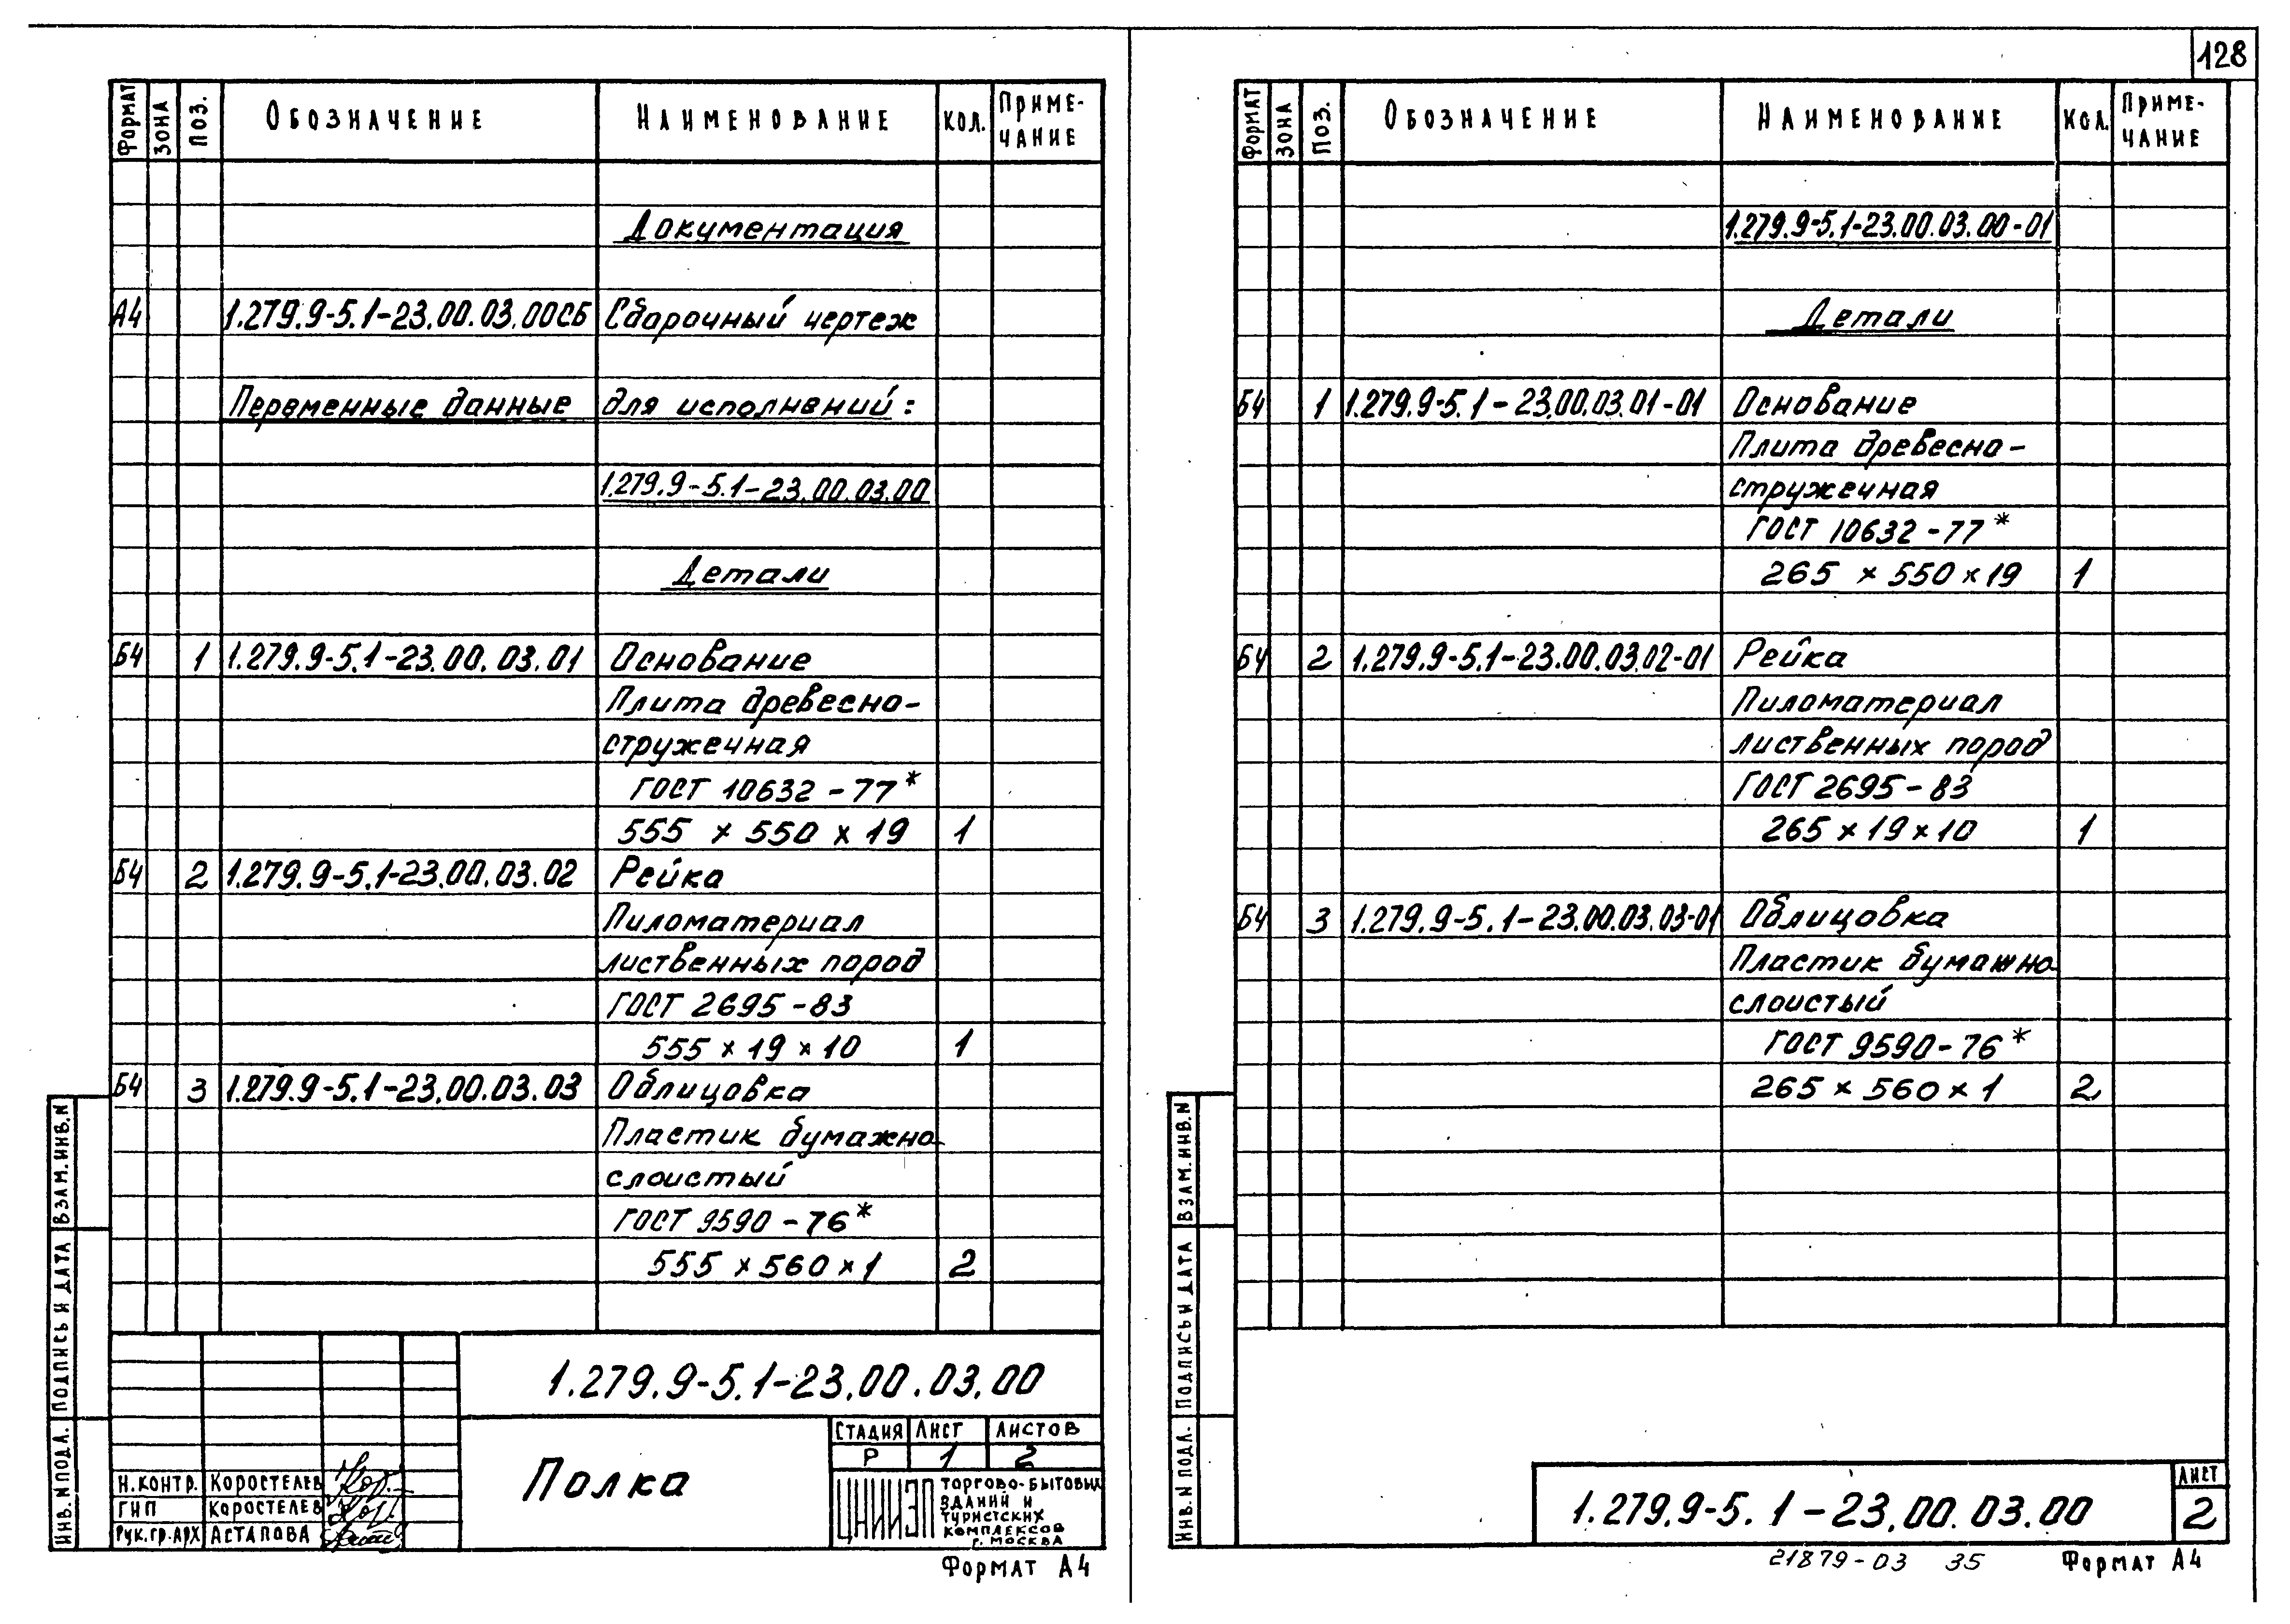 128
ФОРМАТ ЗОНА ПОЗ. ОБОЗНАЧЕНИЕ НАИМЕНОВАНИЕ КОЛ. ПРИМЕ-
ЧАНИЕ
Документация
А4 1.279.9-5.1-23.00.03.00СБ Сборочный чертеж
Переменные данные для исполнений:
1.279.9-5.1-23.00.03.00
Детали
Б4 1 1.279.9-5.1-23.00.03.01 Основание
Плита древесно-
стружечная
ГОСТ 10632-77*
555 × 550 × 19 1
Б4 2 1.279.9-5.1-23.00.03.02 Рейка
Пиломатериал
лиственных пород
ГОСТ 2695-83
555 × 19 × 10 1
Б4 3 1.279.9-5.1-23.00.03.03 Облицовка
Пластик бумажно-
слоистый
ГОСТ 9590-76*
555 × 560 × 1 2
ВЗАМ.ИНВ.N
ПОДПИСЬ И ДАТА
ИНВ.N ПОДЛ.
1.279.9-5.1-23.00.03.00
Полка
СТАДИЯ ЛИСТ ЛИСТОВ
Р 1 2
Н.КОНТР. КОРОСТЕЛЕВ
ГИП КОРОСТЕЛЕВ
РУК.ГР.АРХ АСТАПОВА
ЦНИИЭП ТОРГОВО-БЫТОВЫХ
ЗДАНИЙ И
ТУРИСТСКИХ
КОМПЛЕКСОВ
Г. МОСКВА
ФОРМАТ А4
ФОРМАТ ЗОНА ПОЗ. ОБОЗНАЧЕНИЕ НАИМЕНОВАНИЕ КОЛ. ПРИМЕ-
ЧАНИЕ
1.279.9-5.1-23.00.03.00-01
Детали
Б4 1 1.279.9-5.1-23.00.03.01-01 Основание
Плита древесно-
стружечная
ГОСТ 10632-77*
265 × 550 × 19 1
Б4 2 1.279.9-5.1-23.00.03.02-01 Рейка
Пиломатериал
лиственных пород
ГОСТ 2695-83
265 × 19 × 10 1
Б4 3 1.279.9-5.1-23.00.03.03-01 Облицовка
Пластик бумажно-
слоистый
ГОСТ 9590-76*
265 × 560 × 1 2
ВЗАМ.ИНВ.N
ПОДПИСЬ И ДАТА
ИНВ.N ПОДЛ.
1.279.9-5.1-23.00.03.00
ЛИСТ
2
21879-03 35
ФОРМАТ А4